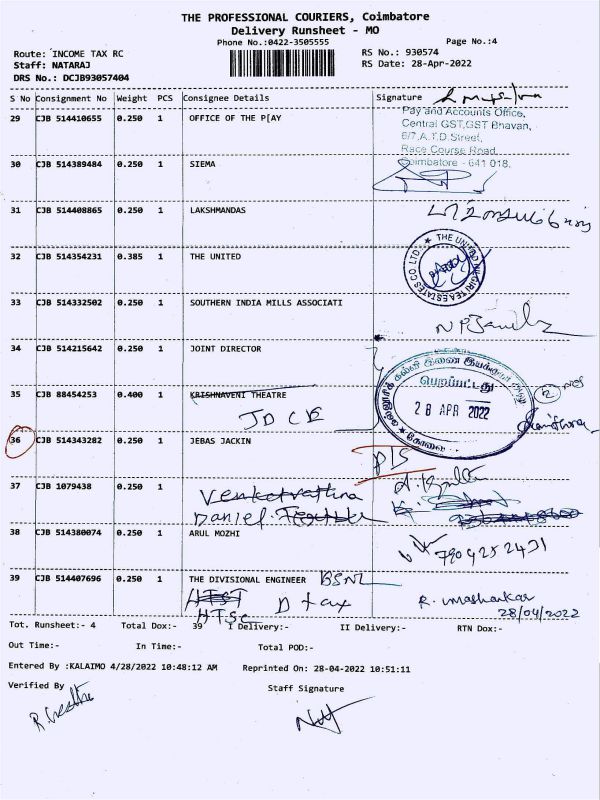 THE PROFESSIONAL COURIERS, Coimbatore
Delivery Runsheet - MO
Phone No.:0422-3505555
Page No.:4
Route: INCOME TAX RC
RS No.: 930574
Staff: NATARAJ
RS Date: 28-Apr-2022
DRS No.: DCJB93057404
S No Consignment No Weight PCS Consignee Details Signature
29 CJB 514410655 0.250 1 OFFICE OF THE P[AY
Pay and Accounts Office,
Central GST,GST Bhavan,
6/7,A.T.D.Street,
Race Course Road,
Coimbatore - 641 018.
30 CJB 514389484 0.250 1 SIEMA
31 CJB 514408865 0.250 1 LAKSHMANDAS
32 CJB 514354231 0.385 1 THE UNITED
THE UNITED NILGIRI TEA ESTATES CO. LTD.
33 CJB 514332502 0.250 1 SOUTHERN INDIA MILLS ASSOCIATI
34 CJB 514215642 0.250 1 JOINT DIRECTOR
பெறப்பட்டது
28 APR 2022
கோவை
35 CJB 88454253 0.400 1 KRISHNAVENI THEATRE
JD CE
36 CJB 514343282 0.250 1 JEBAS JACKIN
37 CJB 1079438 0.250 1
Daniel
38 CJB 514380074 0.250 1 ARUL MOZHI
7904252431
39 CJB 514407696 0.250 1 THE DIVISIONAL ENGINEER BSNL
HTSC D tax
R. Umashankar
28/04/2022
Tot. Runsheet:- 4 Total Dox:- 39 I Delivery:- II Delivery:- RTN Dox:-
Out Time:- In Time:- Total POD:-
Entered By :KALAIMO 4/28/2022 10:48:12 AM Reprinted On: 28-04-2022 10:51:11
Verified By
Staff Signature